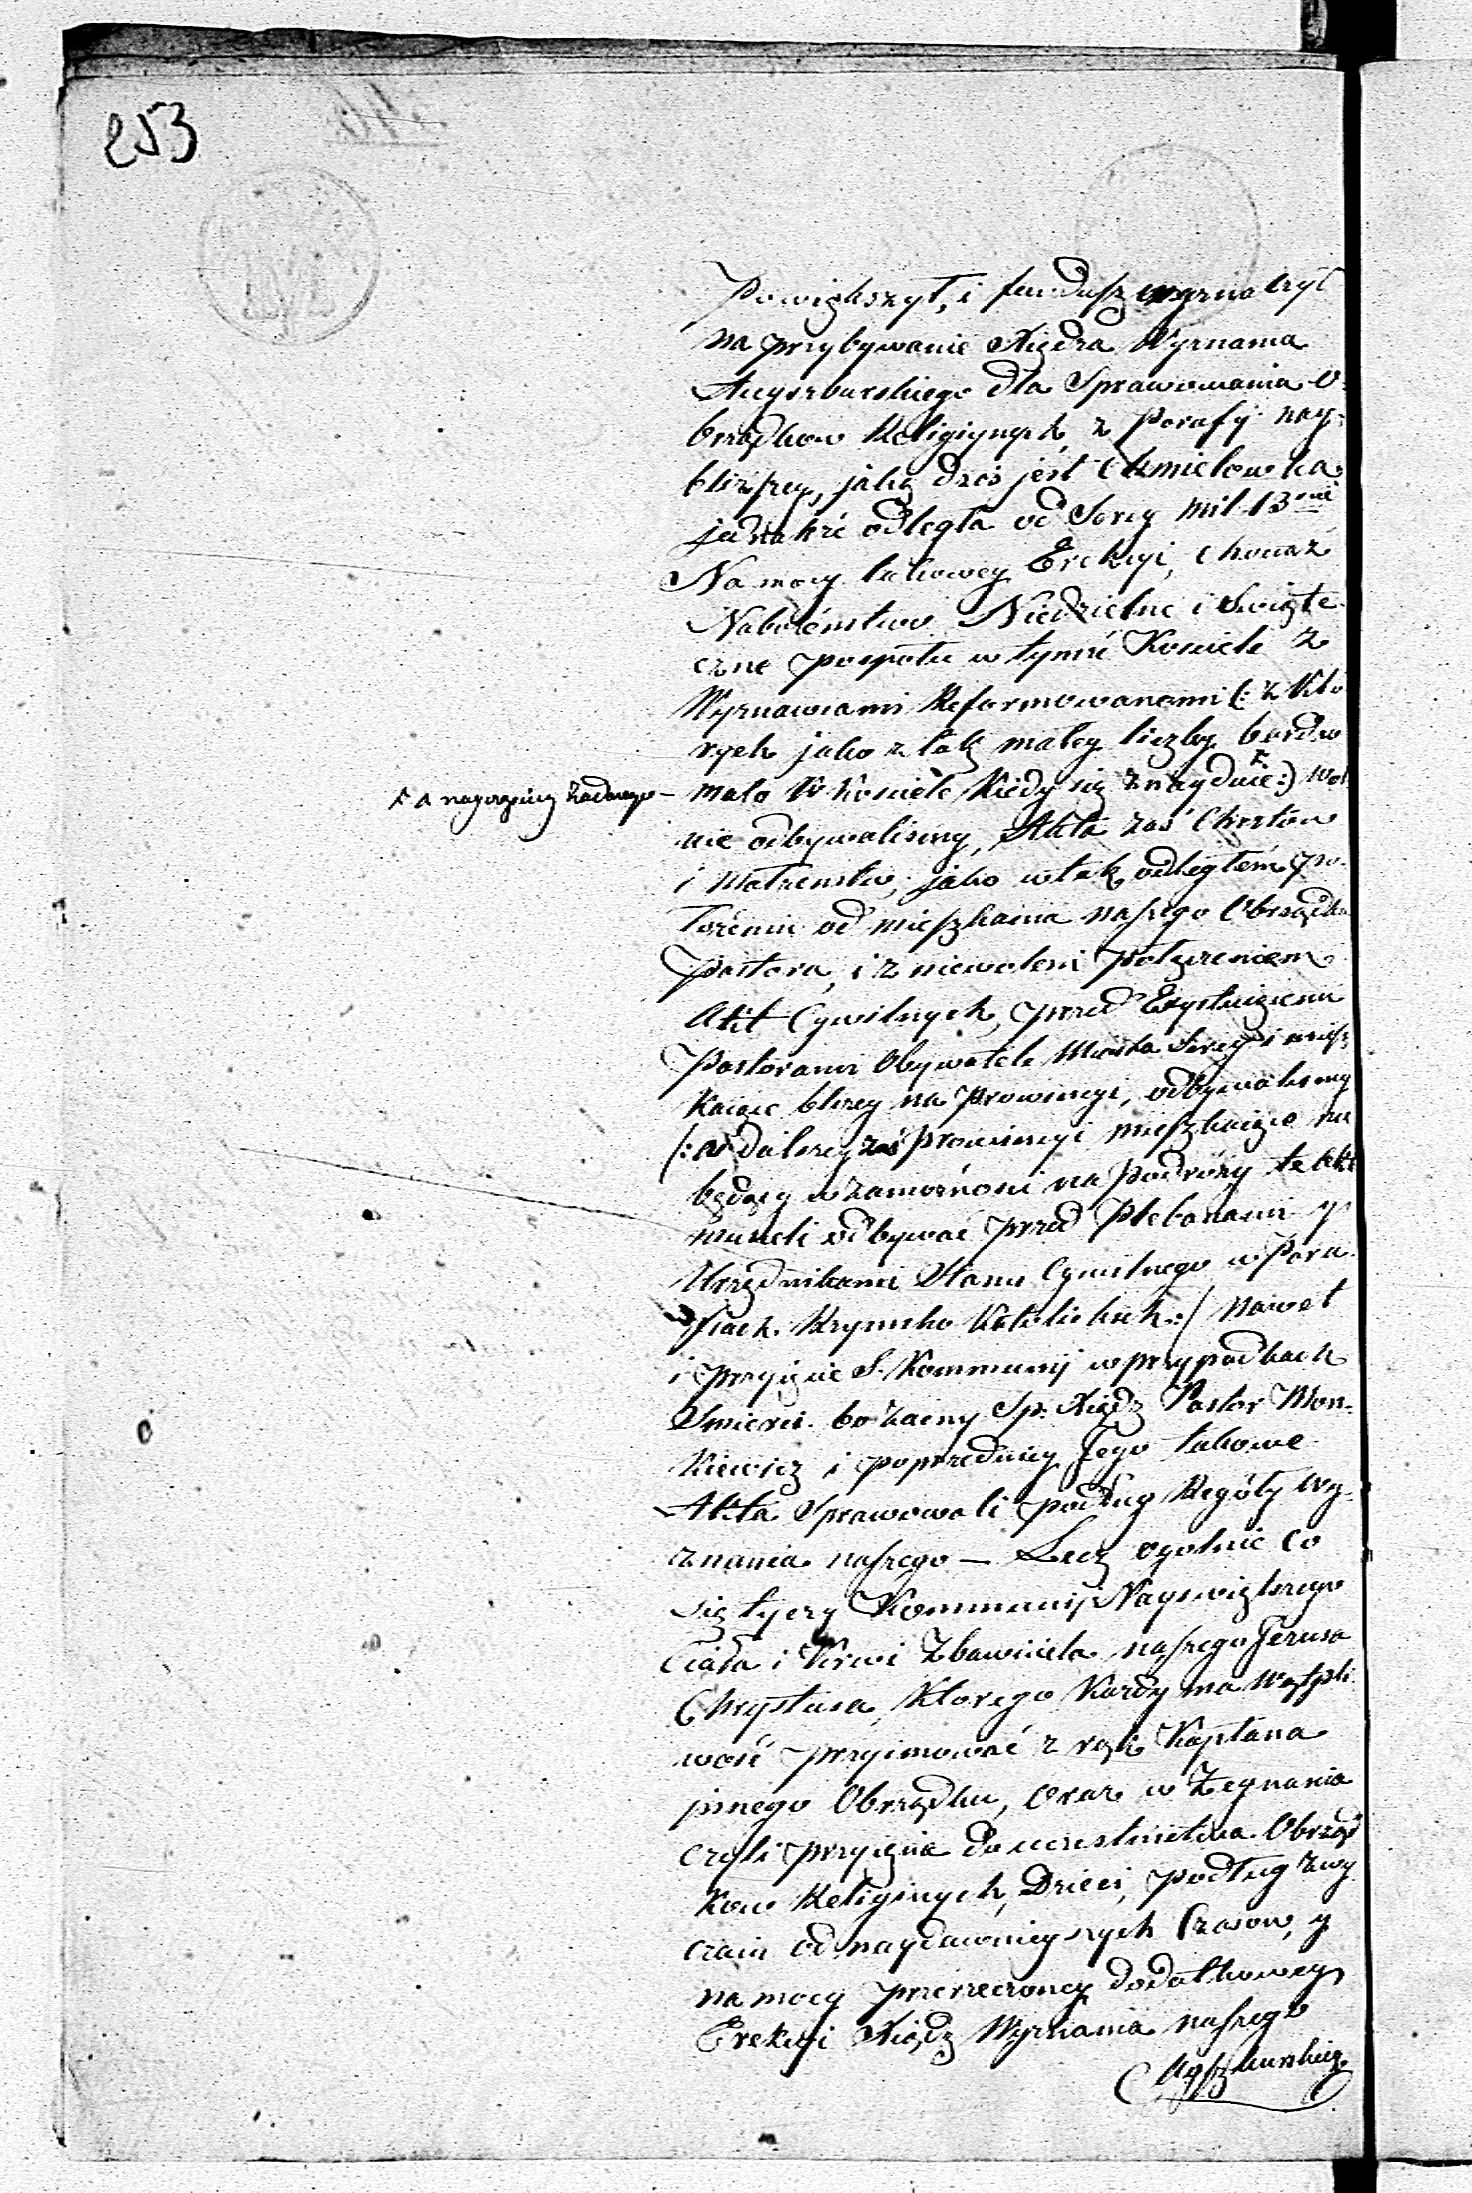 253
Powiększył, i fundusz wyznaczył
na przybywanie Xiędza Wyznania
Augszburskiego dla Sprawowania O-
brządkow Religiynych, z Parafy nay-
bliższey, jaką dziś jest Chmielowka
jednakże odległa od Serey mil 13
Na mocy takowey Erekcyi, chociaż
Nabożeństwo Niedzielne i Swięte-
czne pospołu w tymże Kosciele z
Wyznawcami Reformowanemi (: z Kto-
rych jako z tak małey liczby bardzo
mało w Kosciele Kiedy się znayduie :)
× a nayczęściey żadnego —
nie odbywalismy, Akta zaś Chrztów
i Małżenstw, jako w tak odległem po-
łożeniu od mieszkania naszego Obrządku
Pastora, i z niewoleni połączeniem
Akt Cywilnych, przed
Pastorami Obywatele Miasta Serey i miesz-
kaiące bliżey na Prowincyi, odbywalismy
(: w dalszey zaś prowincyi mieszkaiące nie
będący w zamożności na Podróży te akta
musieli odbywać przed Plebanami y
Urzędnikami Stanu Cywilnego w Para-
fiach Rzymsko Katolickich :) nawet
i przyięcie S. Kommunij w przypadkach
Smierci. bo zacny Sp: Xiądz Pastor Mon-
kiewicz i poprzednicy Jego takowe
Akta Sprawowali podług Reguły Wy-
znania naszego — Lecz ogolnie co
się tyczy Kommunij Nayswiętszego
Ciała i Krwi Zbawiciela naszego Jezusa
Chrystusa, Ktorego Każdy ma Wątpli-
wość przyimować z rąk Kapłana
innego Obrządku, oraz w Żegnania
czyli przyięcia do uczestnictwa Obrząd-
kow Religinych, Dzieci, podług zwy-
czaiu od naydawnieyszych Czasow, y
na mocy przerzeczoney dodatkowey
Erekcyi Xiądz Wyznania naszego
Augszburskiego